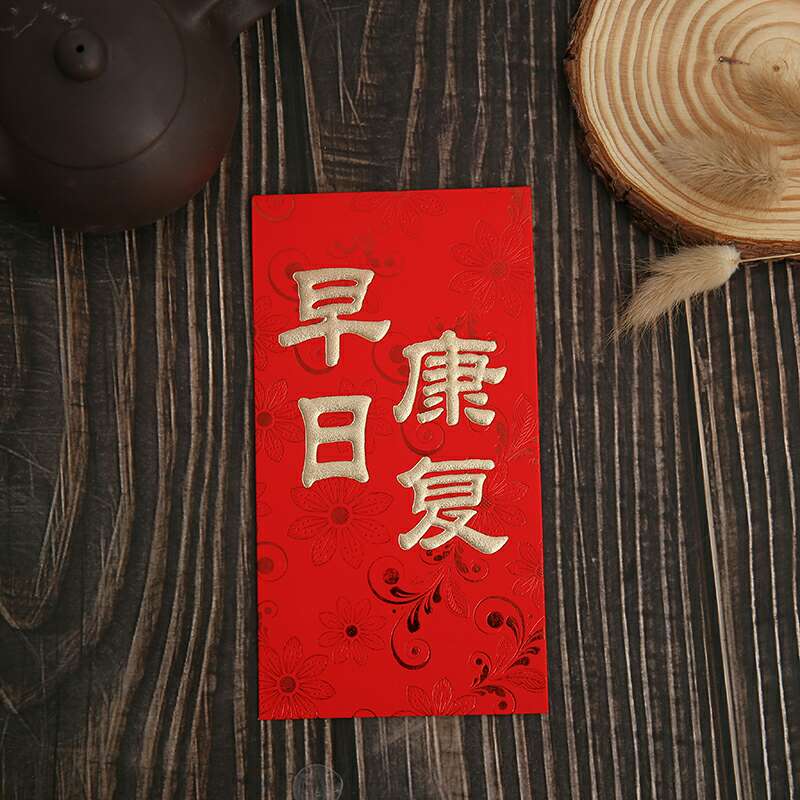 早日
康复